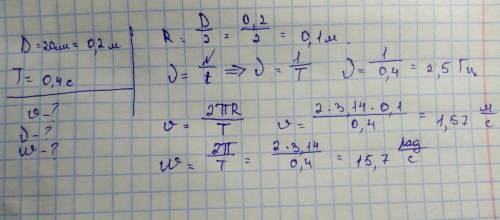 D = 20см = 0,2 м
T = 0,4 с
υ - ?
ν - ?
ω - ?
R = D/2 = 0,2/2 = 0,1 м.
ν = N/t => ν = 1/T ν = 1/0,4 = 2,5 Гц
υ = 2πR/T υ = 2·3,14·0,1/0,4 = 1,57 м/с
ω = 2π/T = 2·3,14/0,4 = 15,7 рад/с